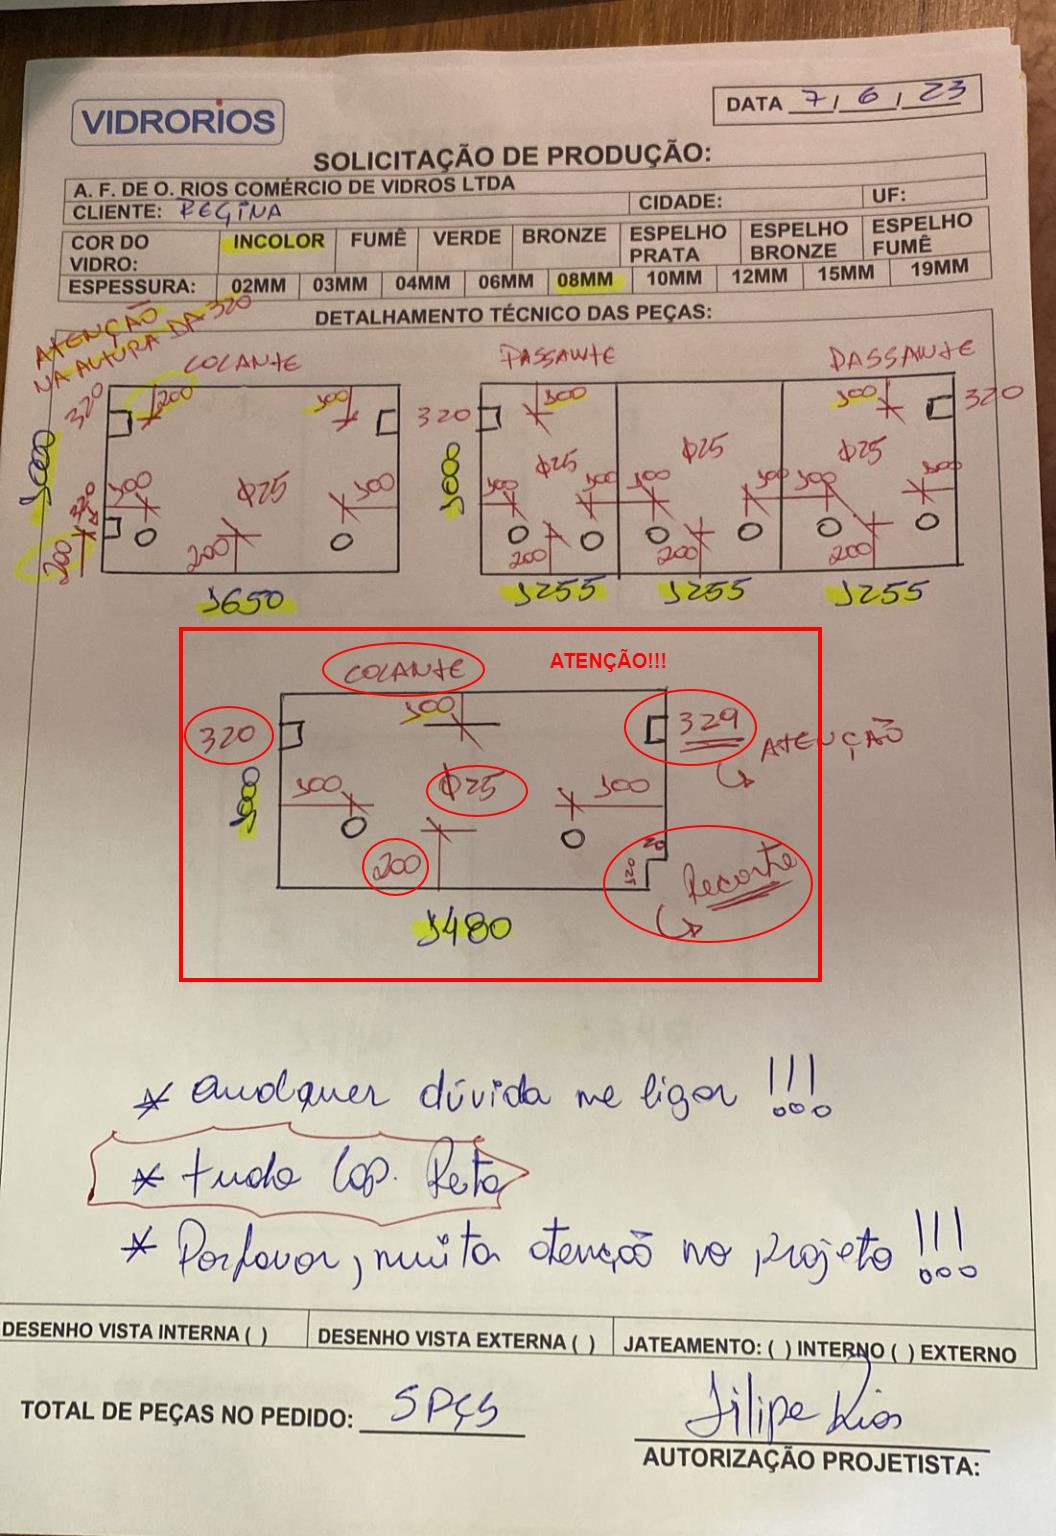 VIDRORIOS
DATA 7 / 6 / 23
SOLICITAÇÃO DE PRODUÇÃO:
A. F. DE O. RIOS COMÉRCIO DE VIDROS LTDA
CLIENTE: REGINA CIDADE: UF:
COR DO VIDRO: INCOLOR FUMÊ VERDE BRONZE ESPELHO PRATA ESPELHO BRONZE ESPELHO FUMÊ
ESPESSURA: 02MM 03MM 04MM 06MM 08MM 10MM 12MM 15MM 19MM
DETALHAMENTO TÉCNICO DAS PEÇAS:
ATENÇÃO
NA ALTURA DA 320
COLANTE PASSANTE PASSANTE
320 200 100 320 100 100 320
1000 1000
100 Φ25 100 100 Φ25 100 100 Φ25 100 100 Φ25 100
320
200 200 200 200 200
1650 1255 1255 1255
COLANTE ATENÇÃO!!!
320 100 329 ATENÇÃO
1000 100 Φ25 100
200 20 025 Recorte
1480
* Qualquer dúvida me ligar !!!
* tudo Lap. Reta
* Por favor, muita atenção no projeto !!!
DESENHO VISTA INTERNA ( ) DESENHO VISTA EXTERNA ( ) JATEAMENTO: ( ) INTERNO ( ) EXTERNO
TOTAL DE PEÇAS NO PEDIDO: 5 PÇS Filipe Rios
AUTORIZAÇÃO PROJETISTA: